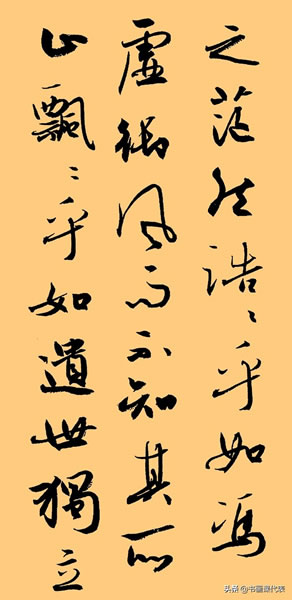 之茫然浩〻乎如馮
虛御風而不知其所
止飄〻乎如遺世獨立
头条 @书画